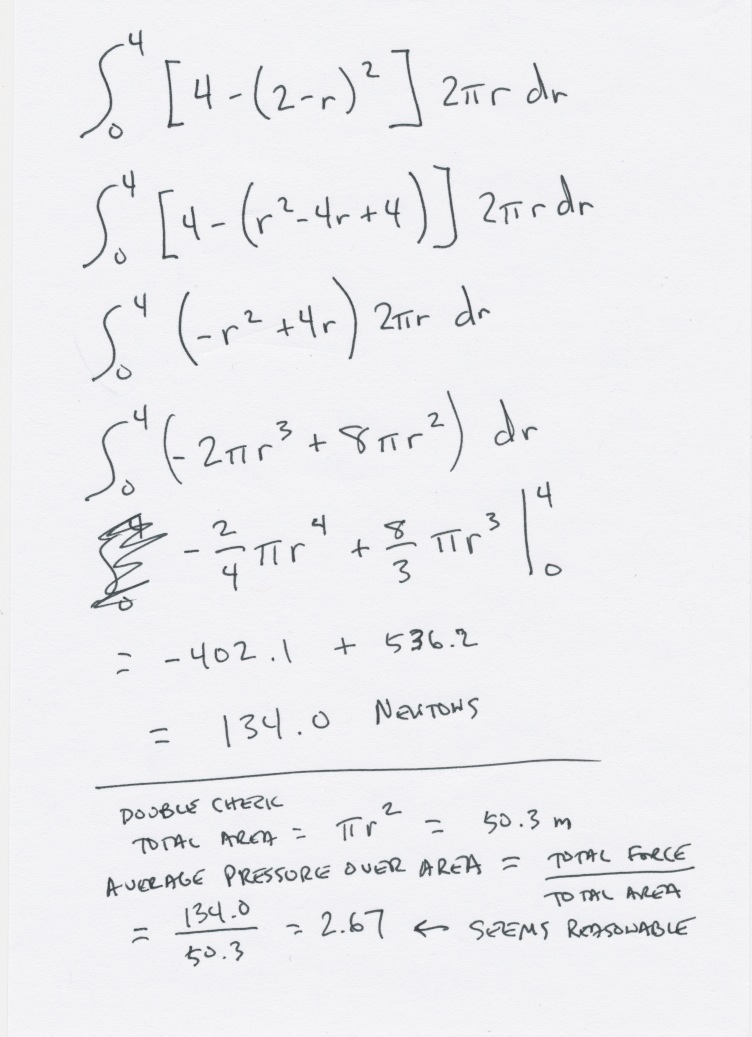 ∫₀⁴ [4-(2-r)²] 2πr dr
∫₀⁴ [4-(r²-4r+4)] 2πr dr
∫₀⁴ (-r²+4r) 2πr dr
∫₀⁴ (-2πr³ + 8πr²) dr
- 2/4 πr⁴ + 8/3 πr³ |₀⁴
= -402.1 + 536.2
= 134.0 NEWTONS
DOUBLE CHECK
TOTAL AREA = πr² = 50.3 m
AVERAGE PRESSURE OVER AREA = TOTAL FORCE / TOTAL AREA
= 134.0 / 50.3 = 2.67 ← SEEMS REASONABLE